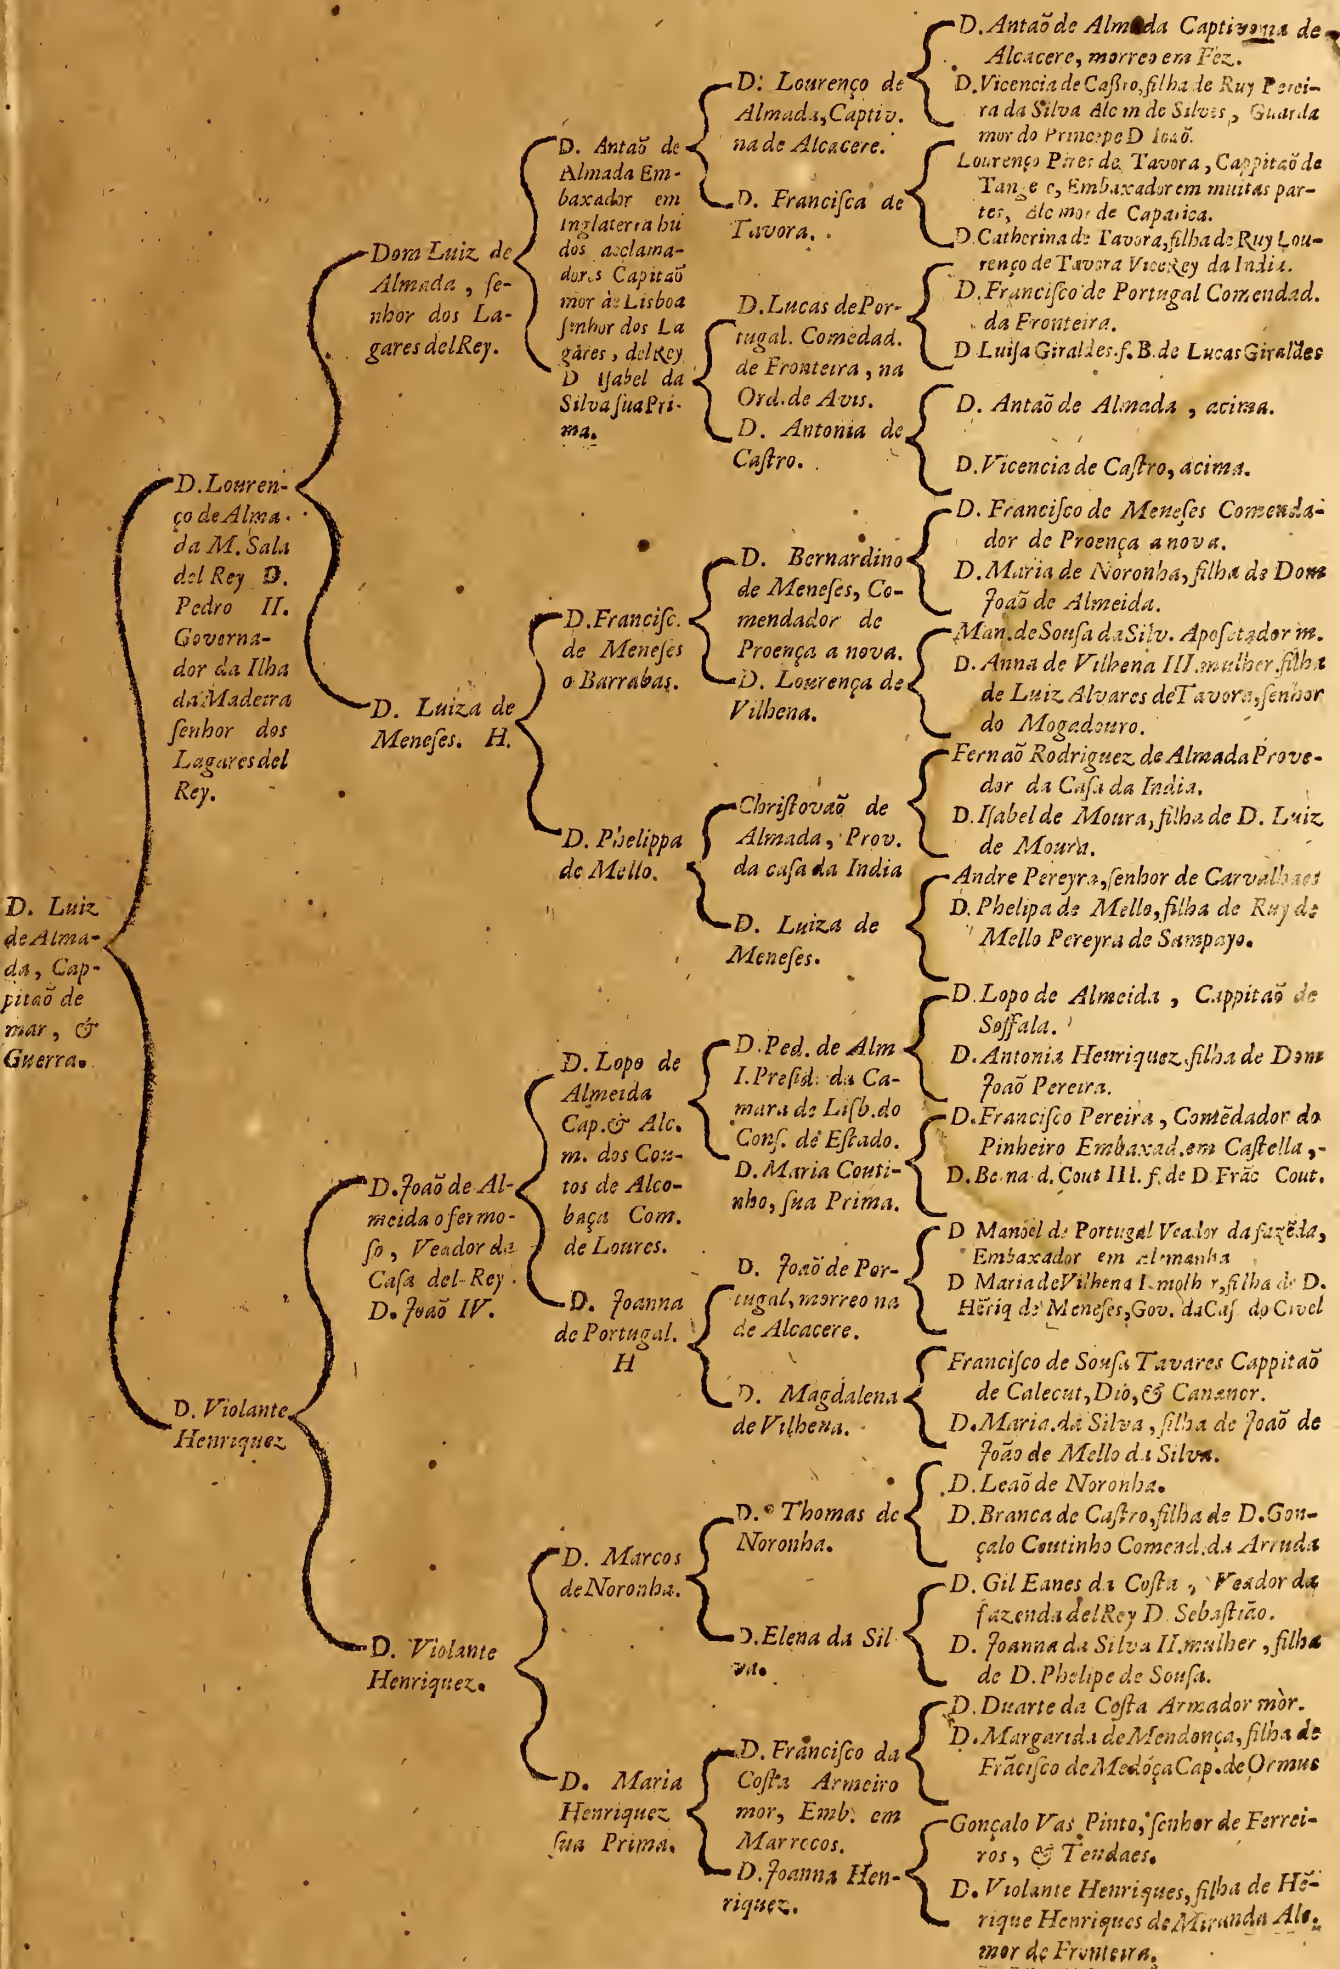 D. Luiz
de Alma-
da, Cap-
pitaõ de
mar, &
Guerra.
D. Louren-
ço de Alma-
da M. Sala
del Rey D.
Pedro II.
Governa-
dor da Ilha
da Madeira
ſenhor dos
Lagares del
Rey.
D. Violante
Henriquez
Dom Luiz de
Almada, ſe-
nhor dos La-
gares delRey.
D. Luiza de
Meneſes. H.
D. Joaõ de Al-
meida o fermo-
ſo, Veador da
Caſa del-Rey
D. Joaõ IV.
D. Violante
Henriquez.
D. Antaõ de
Almada Em-
baxador em
Inglaterra hũ
dos acclama-
dores Capitaõ
mor de Lisboa
ſenhor dos La
gares, delRey
D Iſabel da
Silva ſua Pri-
ma.
D. Franciſc.
de Meneſes
o Barrabas.
D. Phelippa
de Mello.
D. Lopo de
Almeida
Cap. & Alc.
m. dos Cou-
tos de Alco-
baça Com.
de Loures.
D. Joanna
de Portugal.
H
D. Marcos
de Noronha.
D. Maria
Henriquez
ſua Prima.
D: Lourenço de
Almada, Captiv.
na de Alcacere.
D. Franciſca de
Tavora.
D. Lucas de Por-
tugal. Comedad.
de Fronteira, na
Ord. de Avis.
D. Antonia de
Caſtro.
D. Bernardino
de Meneſes, Co-
mendador de
Proença a nova.
D. Lourença de
Vilhena.
Chriſtovaõ de
Almada, Prov.
da caſa da India
D. Luiza de
Meneſes.
D. Ped. de Alm
I. Preſid. da Ca-
mara de Liſb. do
Conſ. de Eſtado.
D. Maria Couti-
nho, ſua Prima.
D. Joaõ de Por-
tugal, morreo na
de Alcacere.
D. Magdalena
de Vilhena.
D. Thomas de
Noronha.
D. Elena da Sil
va.
D. Franciſco da
Coſta Armeiro
mor, Emb. em
Marrecos.
D. Joanna Hen-
riquez.
D. Antaõ de Almada Captivo na de
Alcacere, morreo em Fez.
D. Vicencia de Caſtro, filha de Ruy Perei-
ra da Silva Alc m de Silves, Guarda
mor do Principe D Ioaõ.
Lourenço Pires de Tavora, Cappitaõ de
Tange e, Embaxador em muitas par-
tes, Alc mor de Caparica.
D. Catherina de Tavora, filha de Ruy Lou-
renço de Tavora ViceRey da India.
D. Franciſco de Portugal Comendad.
da Fronteira.
D Luiſa Giraldes. f. B. de Lucas Giraldes
D. Antaõ de Almada, acima.
D. Vicencia de Caſtro, acima.
D. Franciſco de Meneſes Comenda-
dor de Proença a nova.
D. Maria de Noronha, filha de Dom
Joaõ de Almeida.
Man. de Souſa da Silv. Apoſetador m.
D. Anna de Vilhena III. mulher filha
de Luiz Alvares de Tavora, ſenhor
do Mogadouro.
Fernaõ Rodriguez de Almada Prove-
dor da Caſa da India.
D. Iſabel de Moura, filha de D. Luiz
de Moura.
Andre Pereyra, ſenhor de Carvalhaes
D. Phelipa de Mello, filha de Ruy de
Mello Pereyra de Sampayo.
D. Lopo de Almeida, Cappitaõ de
Soffala.
D. Antonia Henriquez, filha de Dom
Joaõ Pereira.
D. Franciſco Pereira, Comẽdador do
Pinheiro Embaxad. em Caſtella,
D. Be na d. Cout III. f. de D Frãc Cout.
D Manoel de Portugal Veador da fazẽda,
Embaxador em Alemanha
D Maria de Vilhena I. molh r, filha de D.
Hẽriq de Meneſes, Gov. da Caſ. do Civel
Franciſco de Souſa Tavares Cappitaõ
de Calecut, Dio, & Cananor.
D. Maria. da Silva, filha de Joaõ de
Joaõ de Mello da Silva.
D. Leaõ de Noronha.
D. Branca de Caſtro, filha de D. Gon-
çalo Coutinho Comend. da Arruda
D. Gil Eanes da Coſta, Veador da
fazenda delRey D. Sebaſtiaõ.
D. Joanna da Silva II. mulher, filha
de D. Phelipe de Souſa.
D. Duarte da Coſta Armador mòr.
D. Margarida de Mendonça, filha de
Frãciſco de Medóça Cap. de Ormus
Gonçalo Vas Pinto, ſenhor de Ferrei-
ros, & Tendaes.
D. Violante Henriques, filha de Hẽ-
rique Henriques de Miranda Alc.
mor de Fronteira.